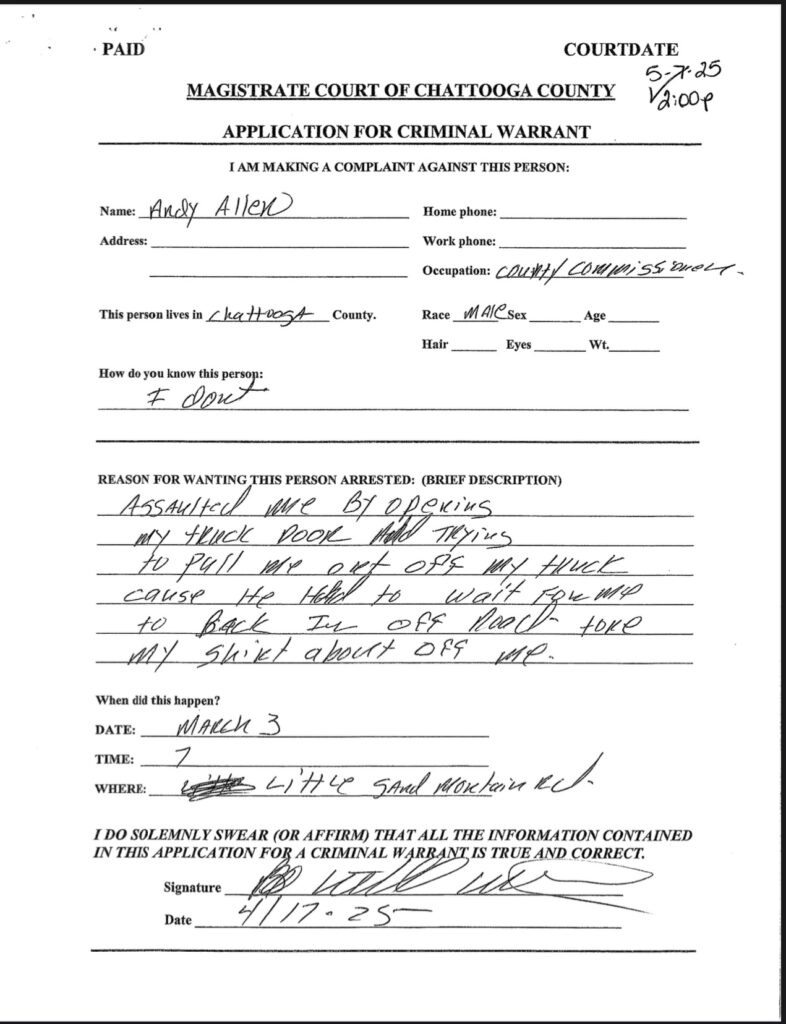 PAID COURTDATE
5-7-25
2:00p
MAGISTRATE COURT OF CHATTOOGA COUNTY
APPLICATION FOR CRIMINAL WARRANT
I AM MAKING A COMPLAINT AGAINST THIS PERSON:
Name: Andy Allen Home phone:
Address: Work phone:
Occupation: County Commissioner.
This person lives in Chattooga County. Race MAle Sex Age
Hair Eyes Wt.
How do you know this person:
I dont
REASON FOR WANTING THIS PERSON ARRESTED: (BRIEF DESCRIPTION)
ASSAulted me By opening
my truck DOOR And TRYing
to pull me out off my truck
cause He Had to wait For me
to Back In off Road tore
my shirt about off me.
When did this happen?
DATE: MARch 3
TIME: 7
WHERE: Little Sand Mountain Rd.
I DO SOLEMNLY SWEAR (OR AFFIRM) THAT ALL THE INFORMATION CONTAINED
IN THIS APPLICATION FOR A CRIMINAL WARRANT IS TRUE AND CORRECT.
Signature
Date 4/17-25